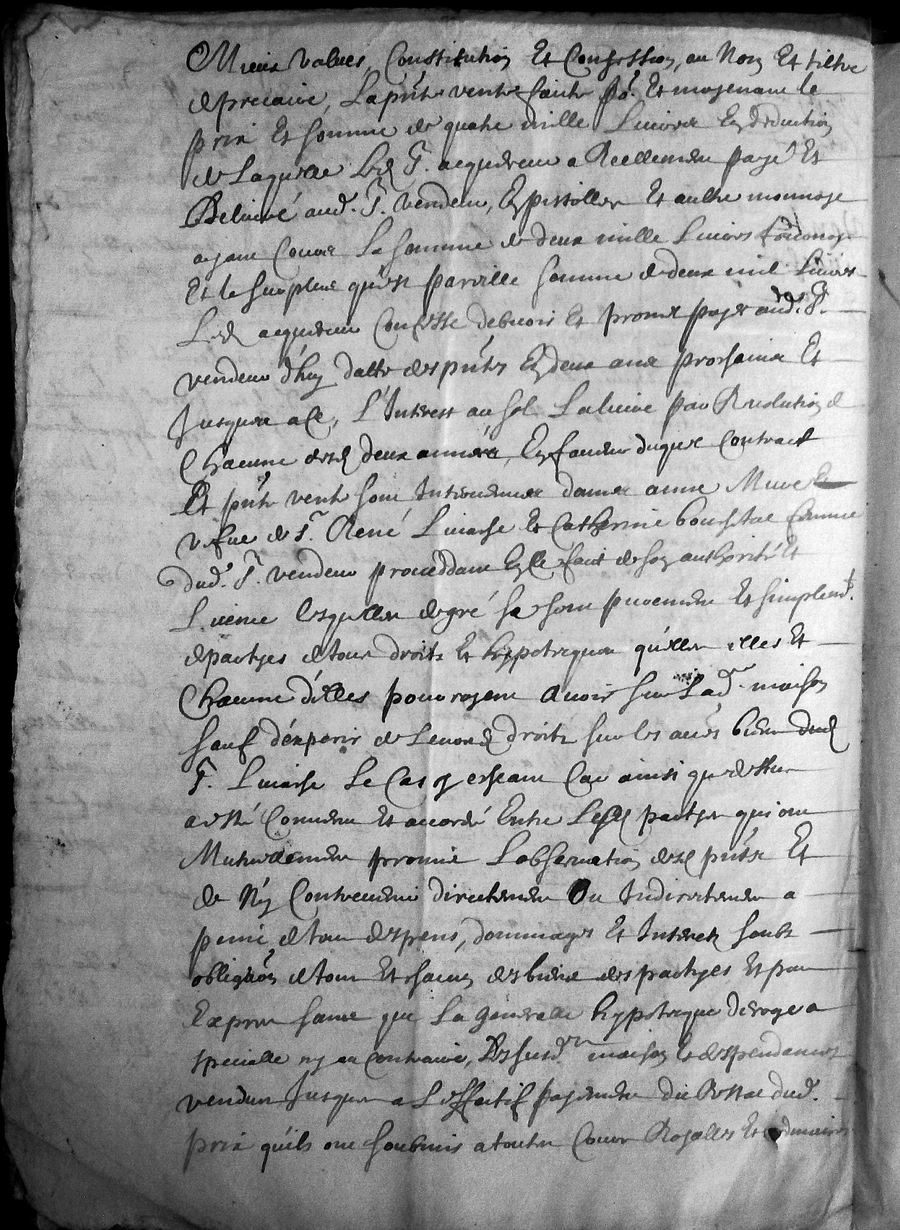 Mieux values, Constitution Et Confession, au Nom Et tiltre
de precaire, La pnte vente faite po.r Et moyenant le
prix Et somme de quatre mille Livres En deduction
de Laquelle Led. Sr. acquereur a Reellement payé Et
Delivré aud. Sr. vendeur, En pistolles Et autre monnoye
ayant Cours La somme de deux mille Livres
Et le surplus quest pareille somme de deux mil Livres
Led. acquereur Confesse debvoir Et promet payer aud. Sr.
vendeur d'huy datte des pntes En deux ans prochains Et
Jusques a Ce, L'Interest au sol La livre par Revolution d
Chacune desd. deux années, En faveur duquel Contract
Et pnte vente sont Intervenues dames anne
vefve de Sr. René Linarse Et Catherine femme
dud. Sr. vendeur proceddant Elle faict de son authorité Et
Licence lesquelles de gré se sont purement Et simplem.t
departyes de tous droits Et hypotecques qu'elles Et
Chacune d'elles pouroyent avoir sur Lad. maison
sauf d'experir de Leursd. droits sur les aues biens dud.
Sr. Linarse Le Cas y escheant Car ainsi que dessus
a esté Convenu Et accordé Entre Lesd. partyes qui ont
Mutuelement promis L'observation desd. pntes Et
de N'y Contrevenir directement Ou Indirectement a
peine de tous despens, dommages Et Interets soubz
obligaon de tous Et chacuns des biens des partyes, Et par
Expres sans que La generalle hypotecque deroge a
specialle ny au Contraire, Les susd. maison Et despendances
vendus Jusques a L'effectif payement du Restat dud.
prix qu'ils ont soubmis a toutes Cours Royalles Et ordinaires